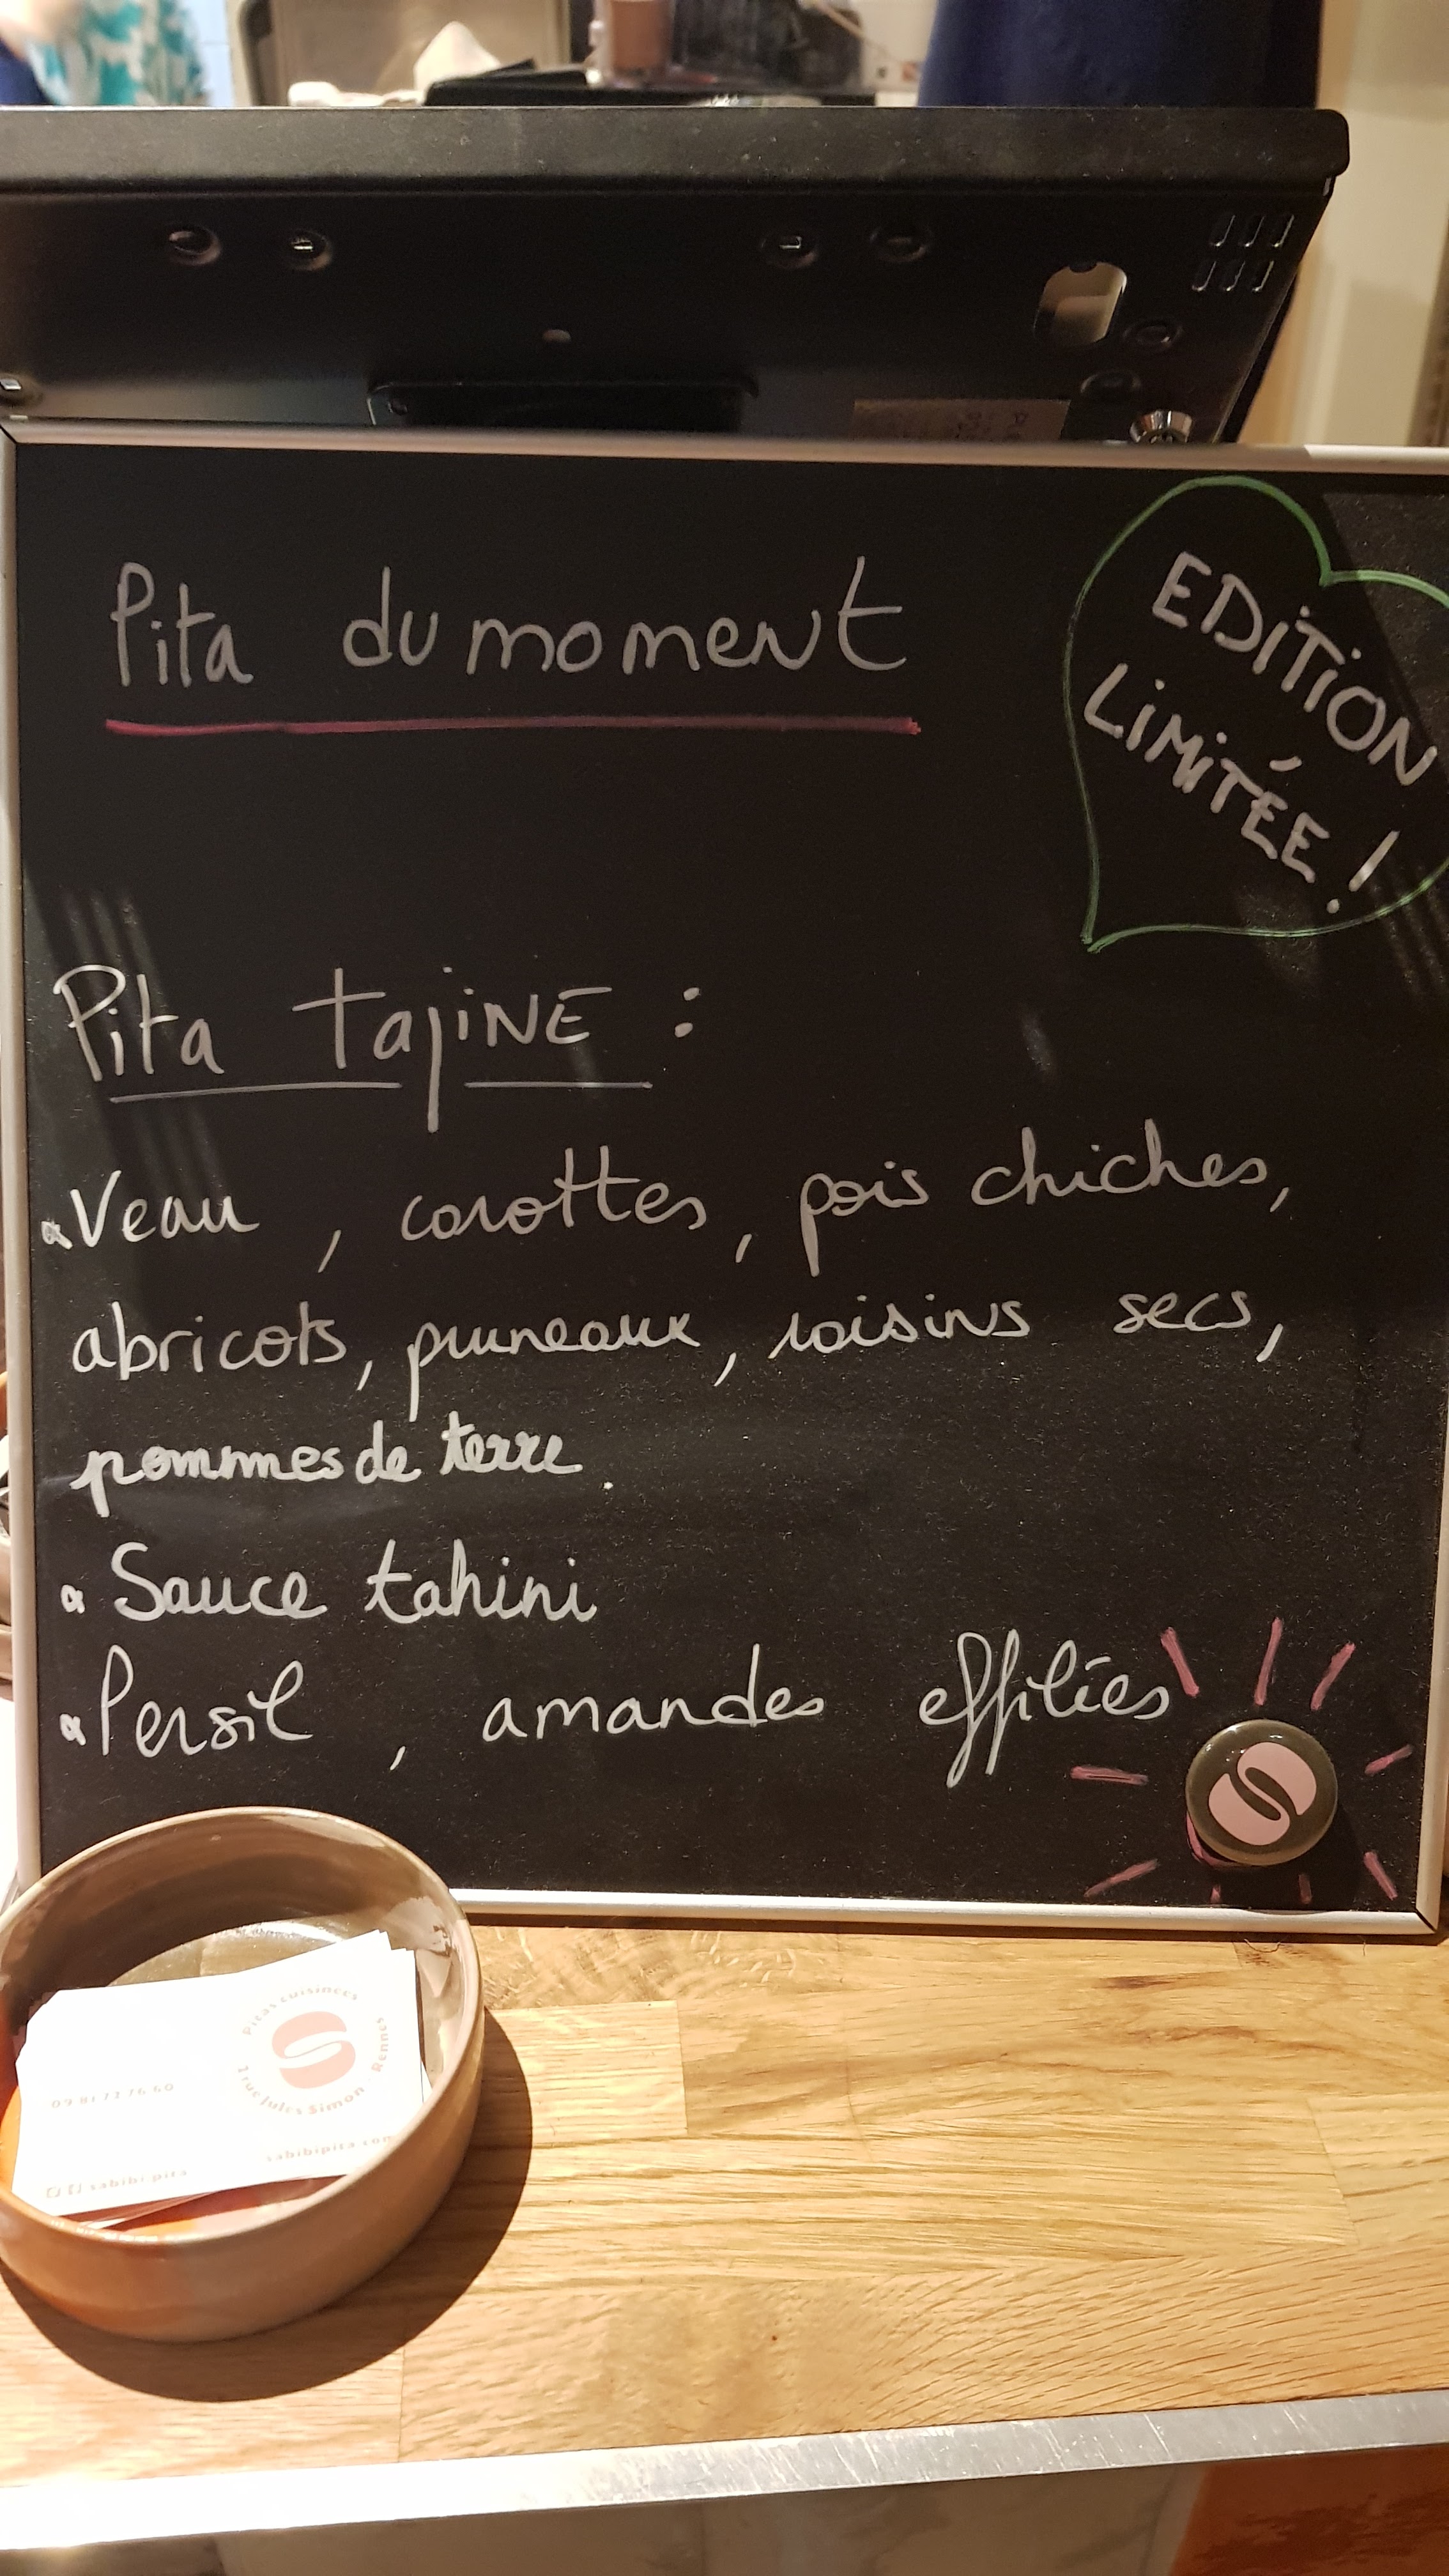 Pita du moment
EDITION
LIMITÉE !
Pita tajine :
Veau, carottes, pois chiches,
abricots, pruneaux, raisins secs,
pommes de terre.
Sauce tahini
Persil, amandes effilées
Pitas cuisinées
1 rue Jules Simon Rennes
09 81 72 76 60
sabibipita.com
sabibi pita